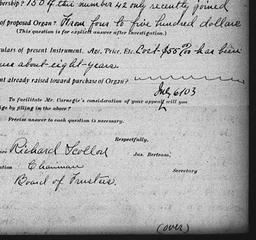 bership? 150 of this number 42 only recently joined
of proposed Organ? From four to five hundred dollars
(This question is for explicit answer after investigation.)
culars of present Instrument. Age, Price, Etc. Cost $55.00 has been
use about eight years.
nt already raised toward purchase of Organ?
July 6/03
To facilitate Mr. Carnegie's consideration of your appeal will you
ige by filling in the above?
Precise answer to each question is necessary.
Respectfully,
Richard Scollon
Jas. Bertram,
Chairman
Secretary
Board of Trustees.
(over)